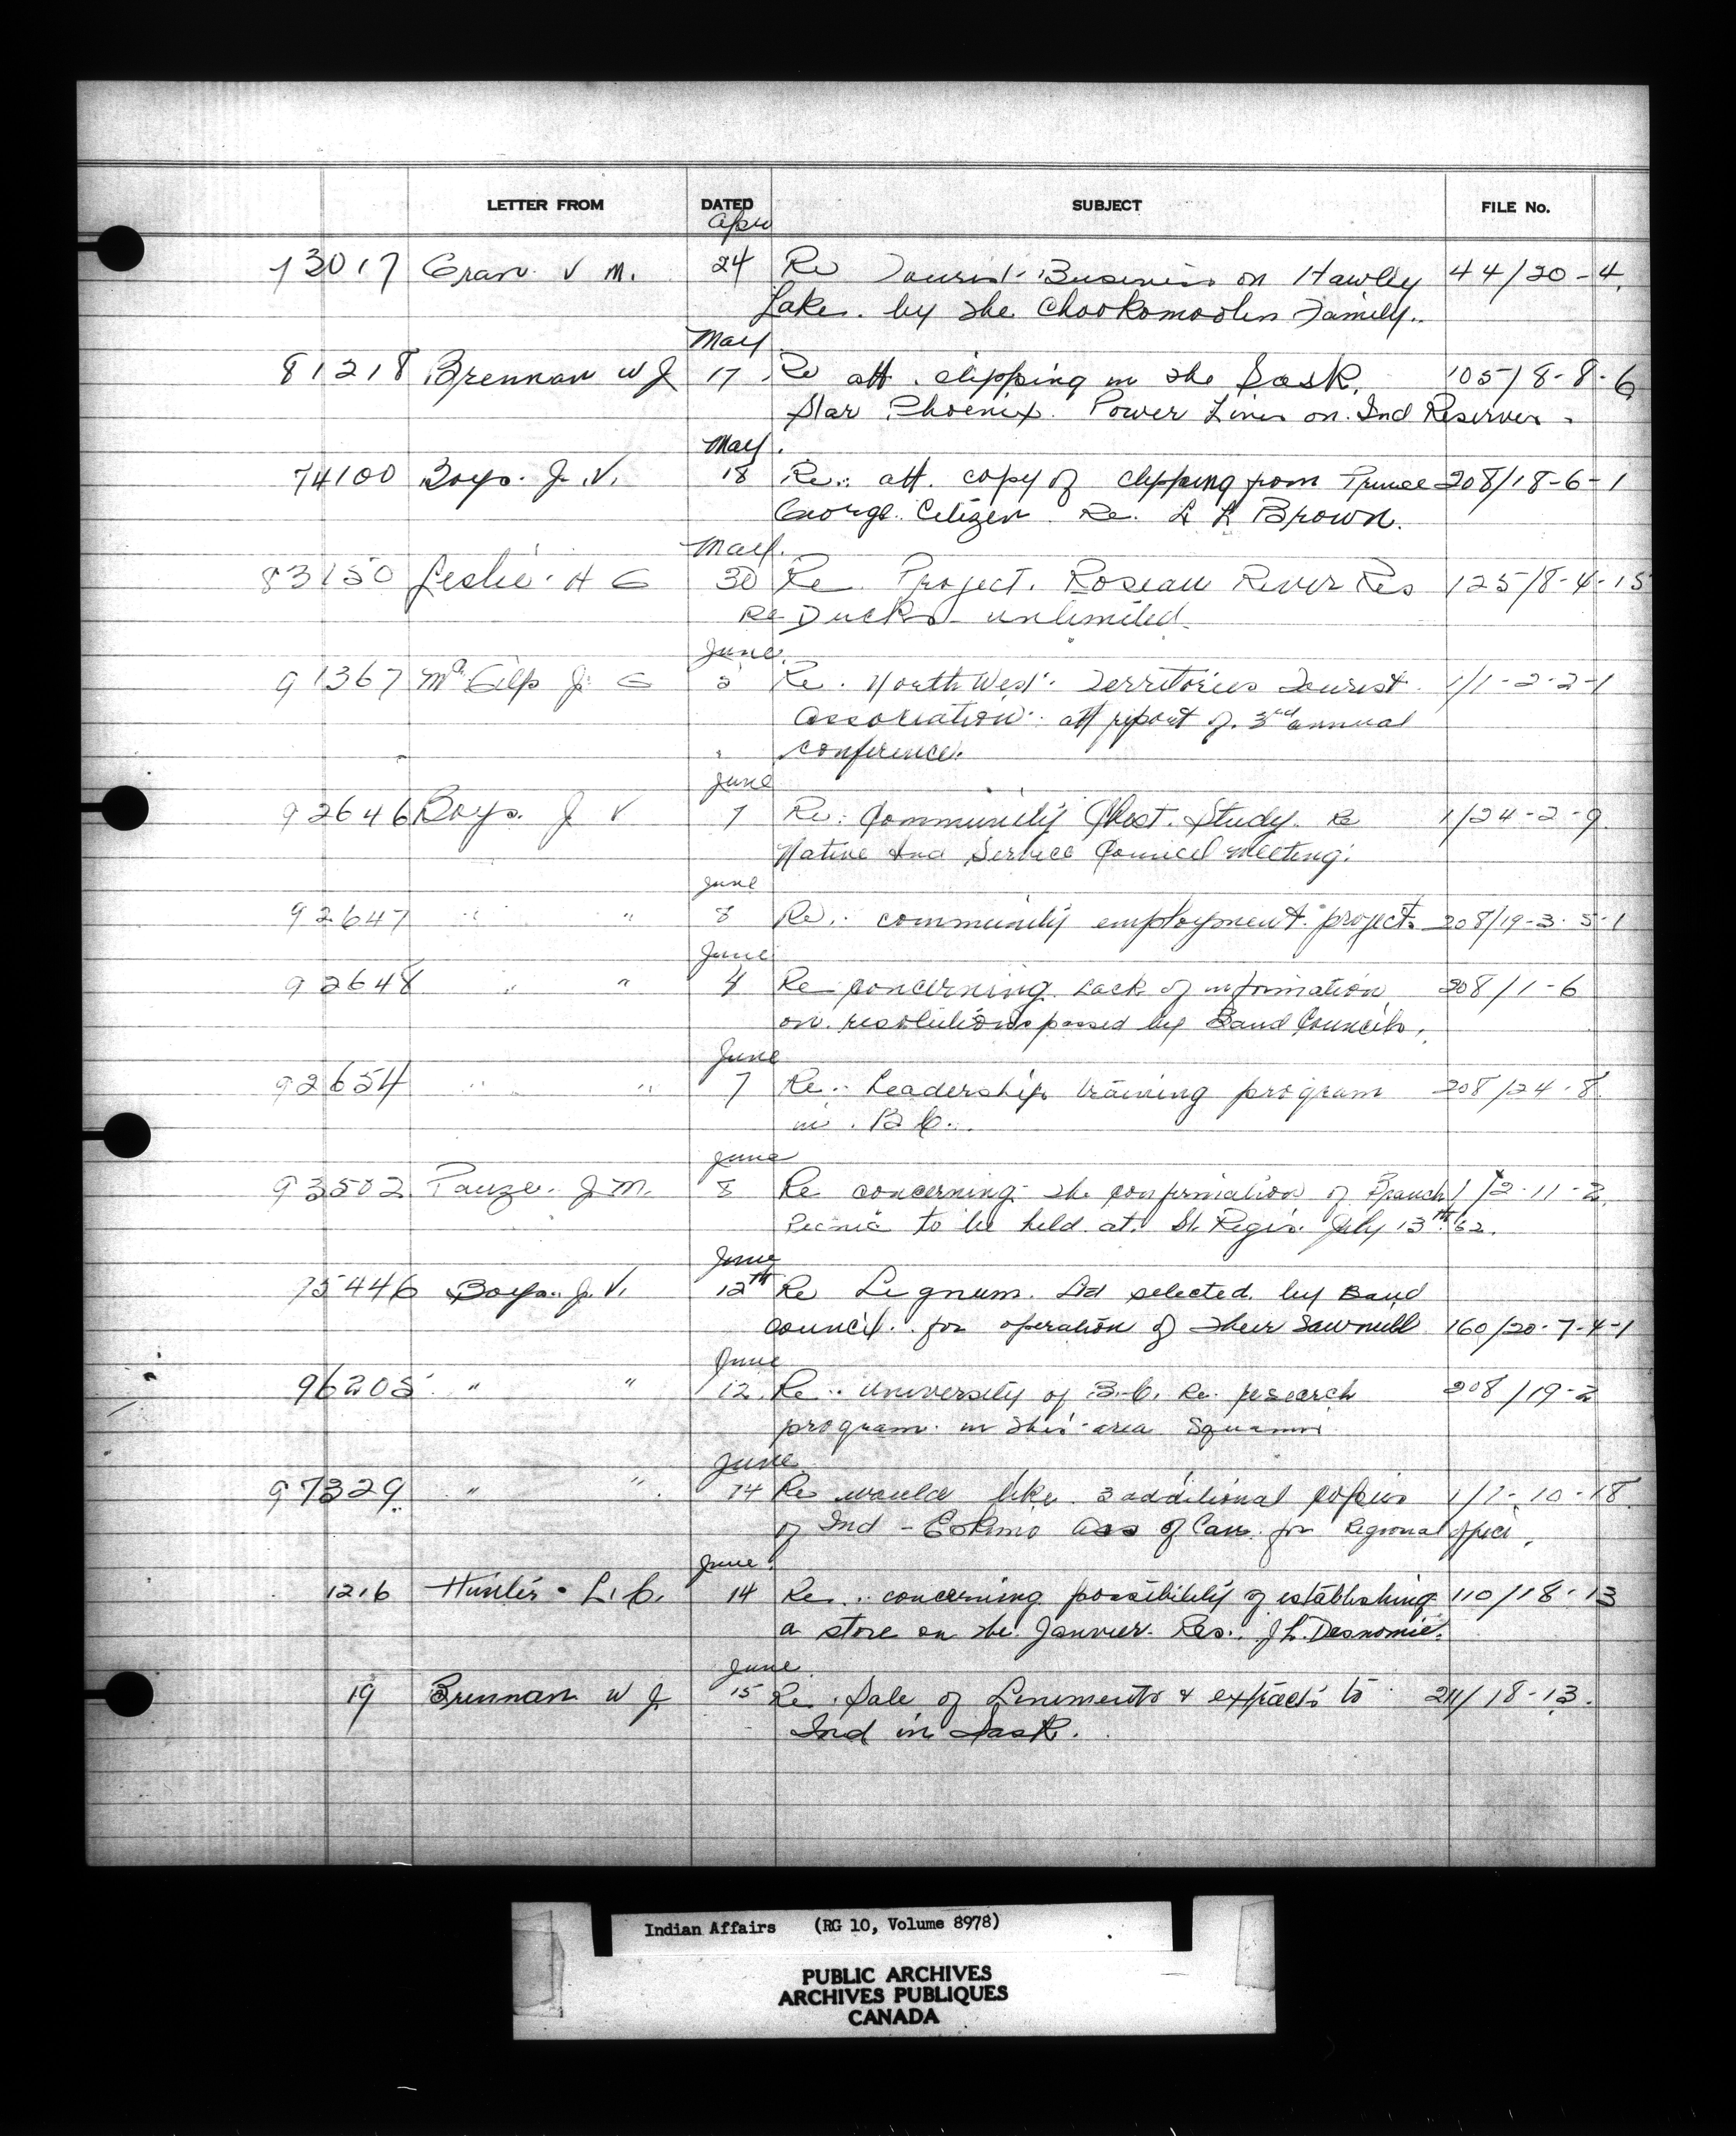 LETTER FROM DATED SUBJECT FILE No.
Apr
73017 Gran V M. 24 Re Tourist Business on Hawley 44/20-4.
Lake. by the Chookomoolin Family.
May
81218 Brennan W J 17 Re att. clipping in the Sask. 105/8-8-6
Star Phoenix. Power Lines on Ind Reserves.
May
74100 Boys. J. V. 18 Re. att. copy of clipping from Prince 208/18-6-1
George Citizen Re. L L Brown.
May
83150 Leslie. A G 30 Re Project. Roseau River Res 125/8-4-15
Re Ducks unlimited.
June
91367 McGilp J. G Re. North West Territories Tourist 1/1-2-2-1
Association att report of 3rd annual
conference.
June
92646 Boys. J V 7 Re. Community Chest. Study. Re 1/24-2-9.
Native Ind Service Council meeting.
June
92647 " " 8 Re. community employment projects 208/19-3-5-1
June
92648 " " Re concerning Lack of information 208/1-6
on resolutions passed by Band Councils.
June
92654 " " 7 Re. Leadership training program 208/24-8.
in B C.
June
93502 Pauze. J M. 8 Re concerning the confirmation of Branch 1/2-11-2.
Picnic to be held at St. Regis. July 13th 62.
June
75446 Boys. J. V. 12th Re Lignum. Ltd selected by Band
council. for operation of their Sawmill 160/20-7-4-1
June
96205 " " 12. Re. University of B.C. Re. research 208/19-2
program in this area
June
97329 " " 14 Re would like 3 additional copies 1/1-10-18.
of Ind - Eskimo Ass of Can. for Regional office.
June
1216 Hunter. L. C. 14 Re. concerning possibility of establishing 110/18-13
a store on the Janvier Res. J L. Desnomie.
June
19 Brennan W J 15 Re. Sale of Liniments & extracts to 211/18-13.
Ind in Sask.
Indian Affairs (RG 10, Volume 8978)
PUBLIC ARCHIVES
ARCHIVES PUBLIQUES
CANADA